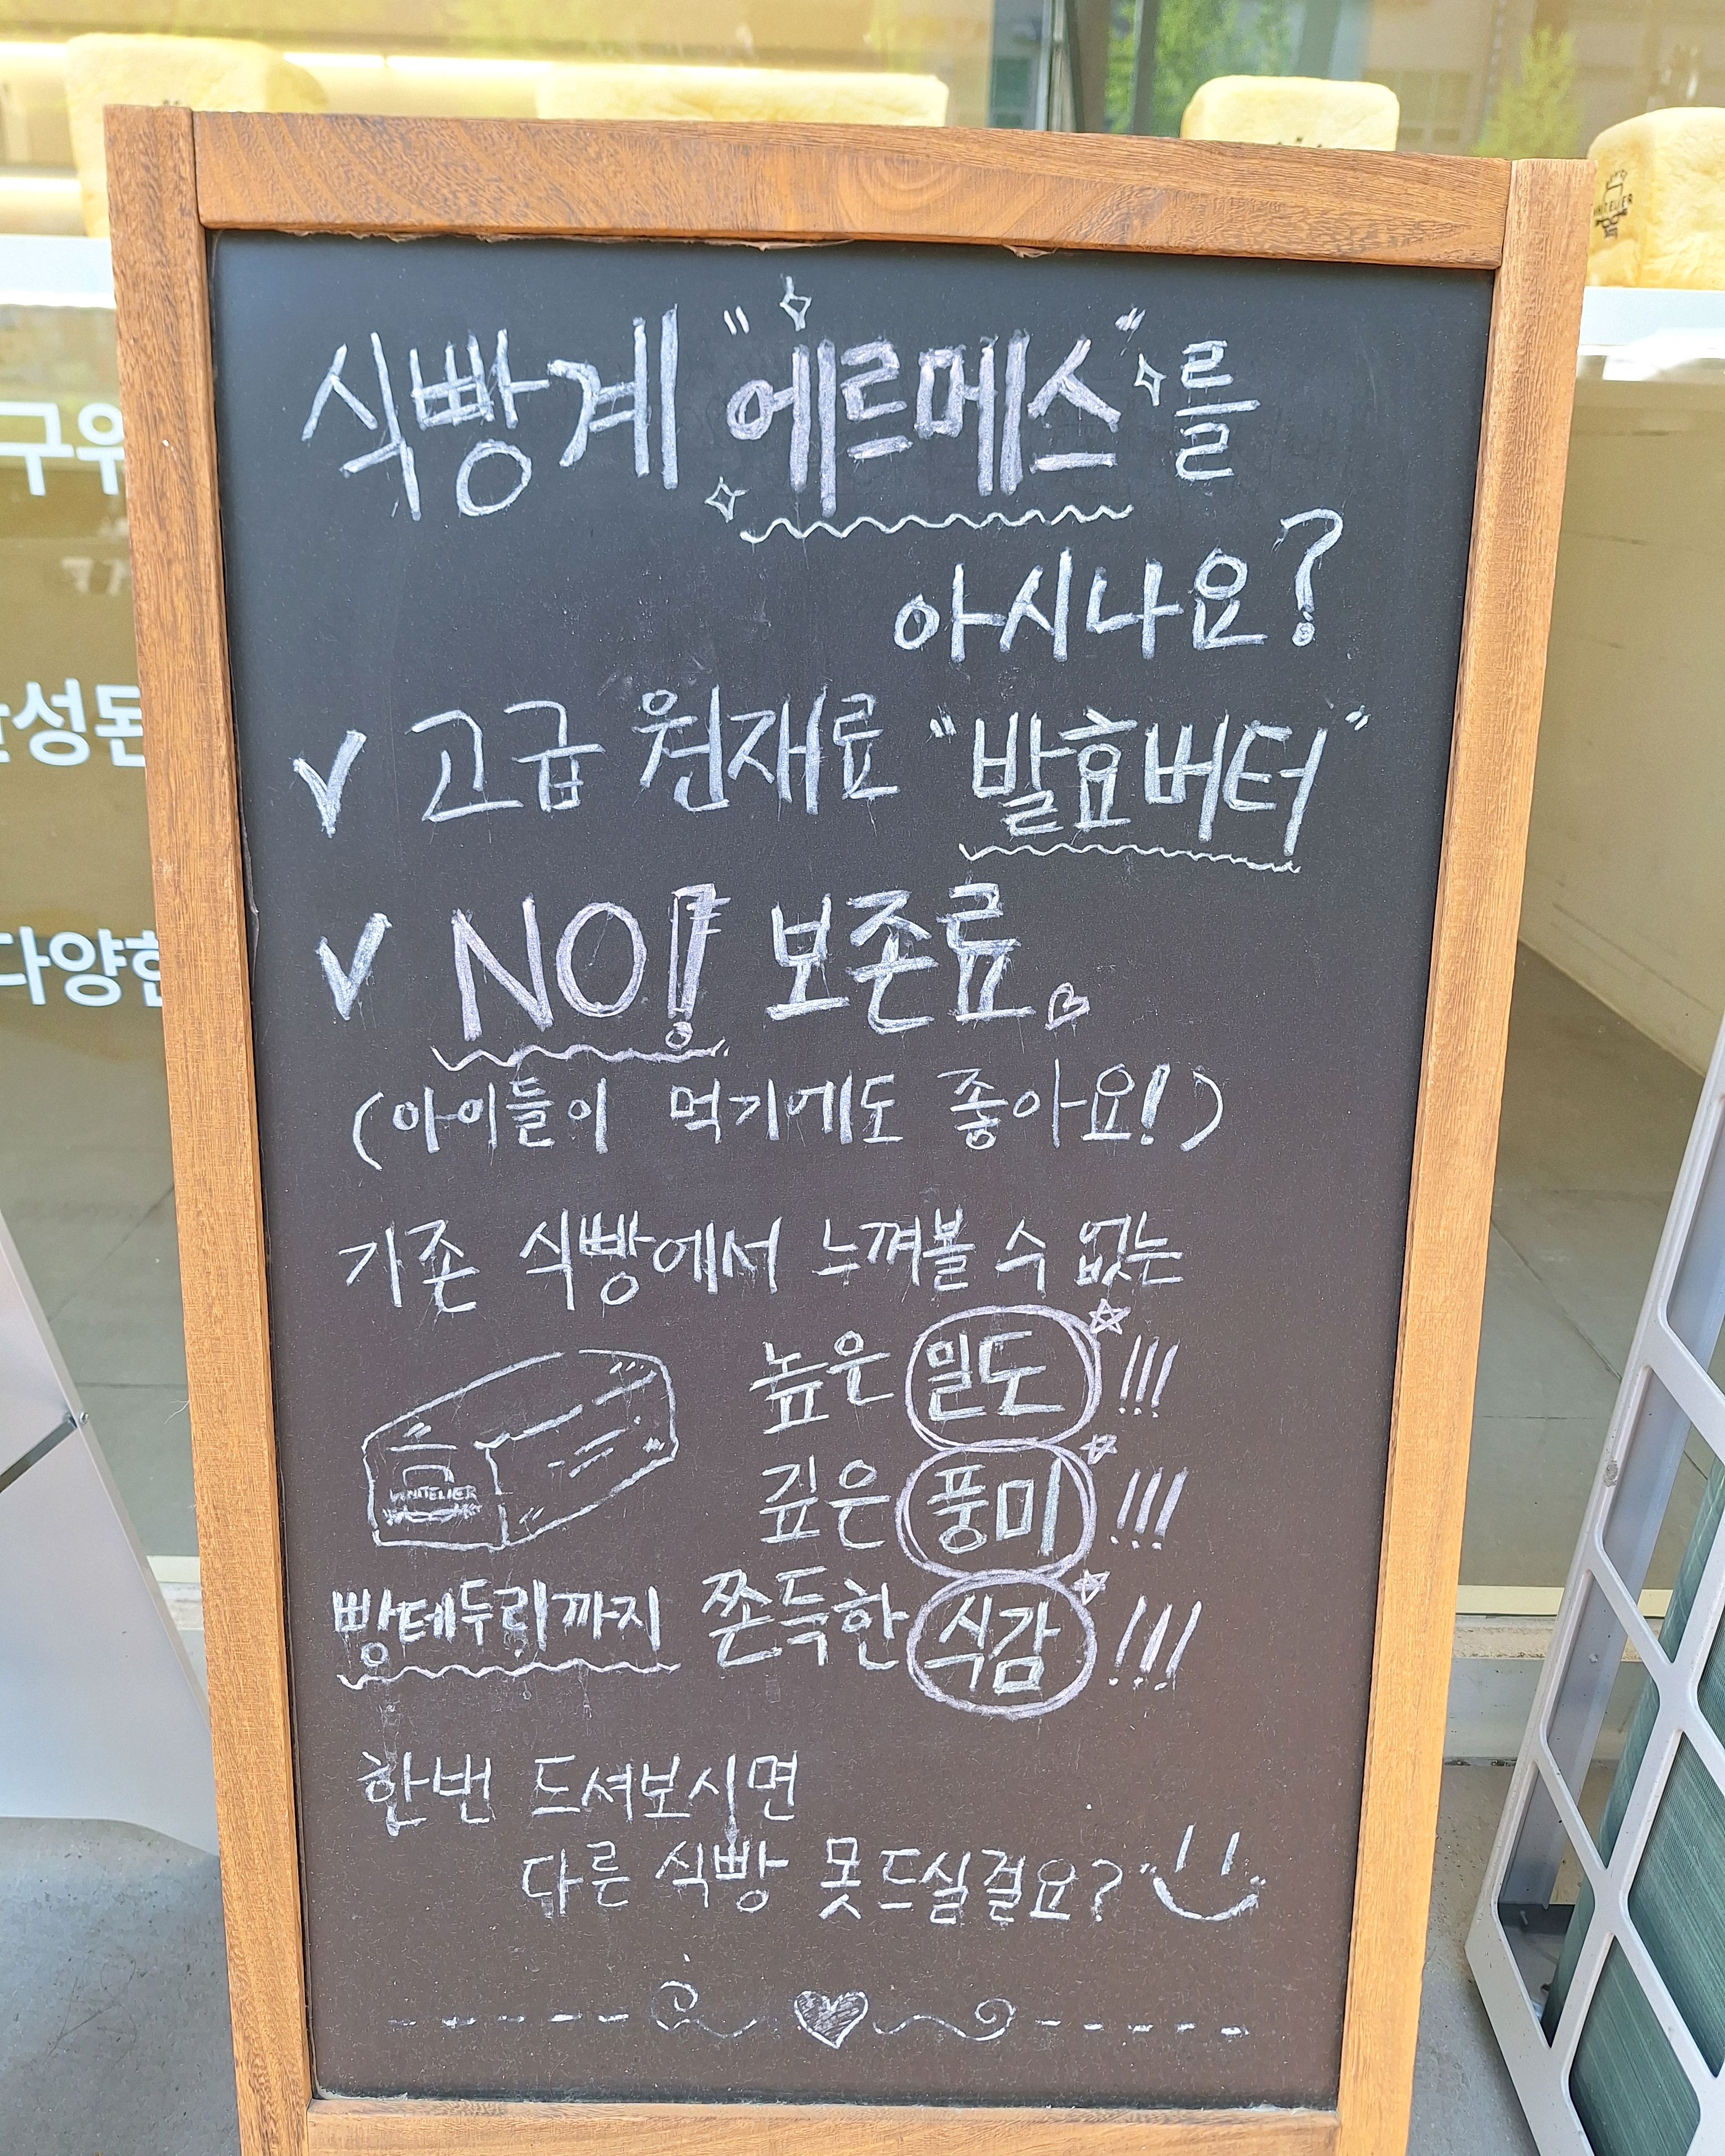 식빵계 "에르메스"를
아시나요?
고급 원재료 "발효버터"
NO! 보존료
(아이들이 먹기에도 좋아요!)
기존 식빵에서 느껴볼 수 없는
높은 밀도 !!!
깊은 풍미 !!!
빵테두리까지 쫀득한 식감 !!!
한번 드셔보시면
다른 식빵 못드실걸요?